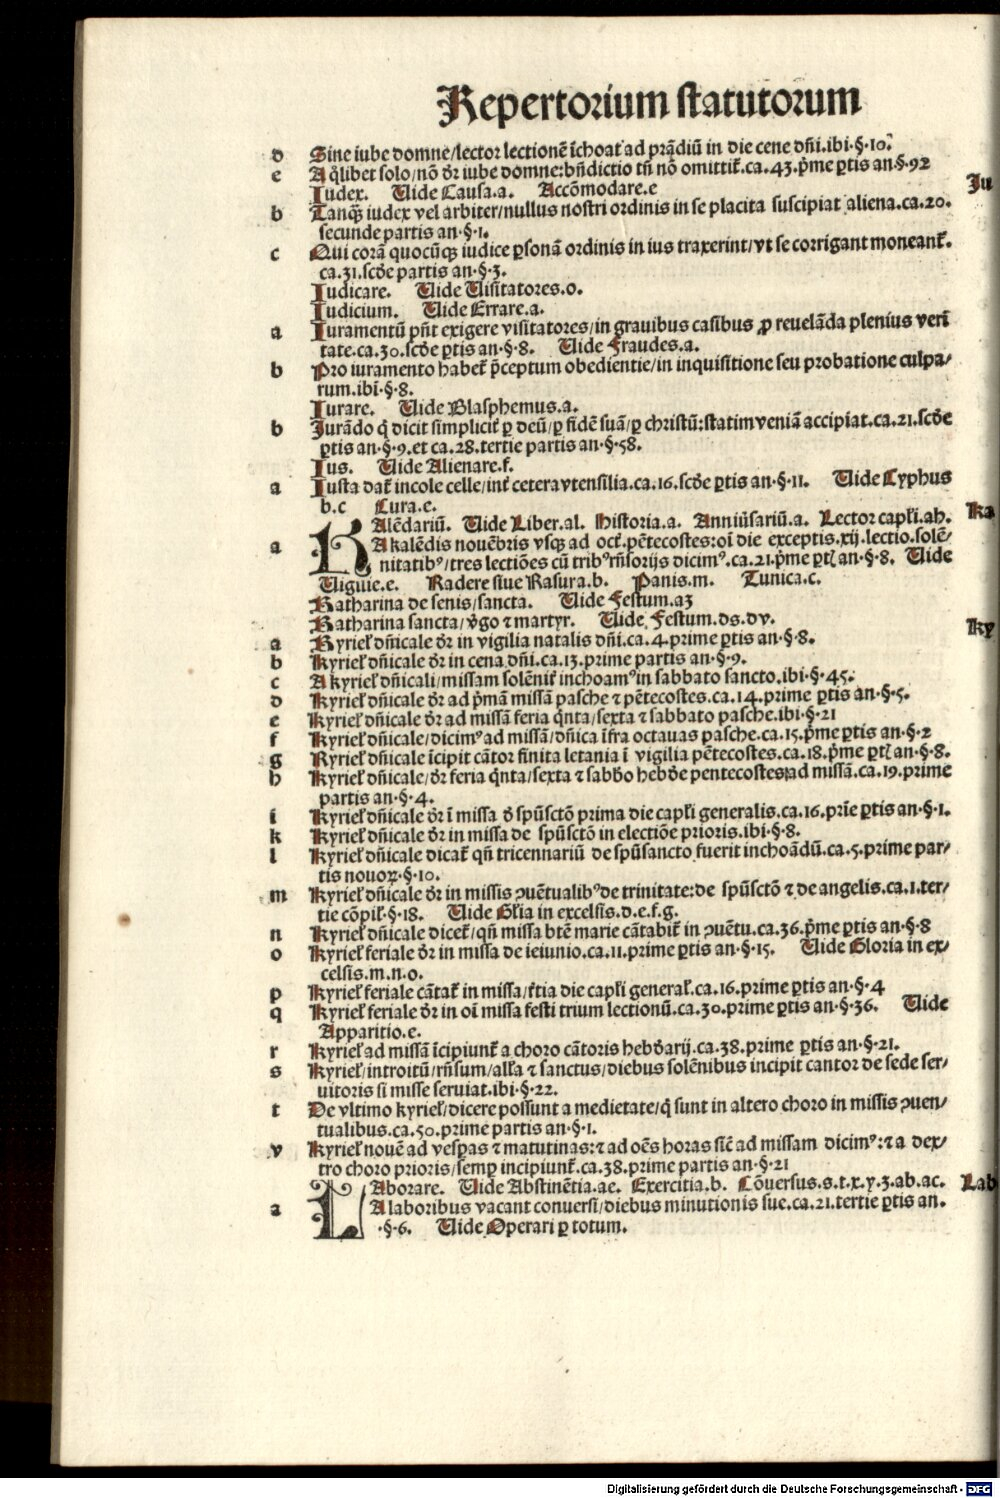 Repertorium statutorum
d Sine iube domne/lector lectionē īchoat ad prādiū in die cene dñi.ibi.§.10.
e A q̄libet solo/nō dr̄ iube domne:bñdictio tñ nō omittit̄.ca.43.p̄me ꝑtis an.§.92
Iudex. Uide Causa.a. Accōmodare.e
Ju
b Tanq̄ȝ iudex vel arbiter/nullus nostri ordinis in se placita suscipiat aliena.ca.20.
secunde partis an.§.1.
c Qui corā quocūqȝ iudice ꝑsonā ordinis in ius traxerint/vt se corrigant moneant̄.
ca.31.scd̄e partis an.§.3.
Iudicare. Uide Uisitatores.o.
Iudicium. Uide Errare.a.
a Iuramentū pñt exigere visitatores/in grauibus casibus ꝓ reuelāda plenius veri
tate.ca.30.scd̄e ꝑtis an.§.8. Uide Fraudes.a.
b Pro iuramento habet̄ p̄ceptum obedientie/in inquisitione seu probatione culpa/
rum.ibi.§.8.
Iurare. Uide Blasphemus.a.
b Jurādo q̄ dicit simplicit̄ ꝑ deū/ꝑ fidē suā/ꝑ christū:statim veniā accipiat.ca.21.scd̄e
ꝑtis an.§.9.et ca.28.tertie partis an.§.58.
Ius. Uide Alienare.f.
a Iusta dat̄ incole celle/int̄ cetera vtensilia.ca.16.scd̄e ꝑtis an.§.11. Uide Cyphus
b.c Cura.e.
Kalēdariū. Uide Liber.al. Historia.a. Anniūsariū.a. Lector capłi.ah.
Ka
a A kalēdis nouēbris vsqȝ ad oct̄.pētecostes:oī die exceptis.xij.lectio.solē/
nitatibꝰ/tres lectiōes cū tribꝰ rñsorijs dicimꝰ.ca.21.p̄me ꝑtꝭ an.§.8. Uide
Uigilie.e. Radere siue Rasura.b. Panis.m. Tunica.c.
Katharina de senis/sancta. Uide Festum.aȝ
Katharina sancta/v̄go ⁊ martyr. Uide Festum.ds.dv.
Ky
a Kyrieł dñicale dr̄ in vigilia natalis dñi.ca.4.prime ꝑtis an.§.8.
b Kyrieł dñicale dr̄ in cena dñi.ca.13.prime partis an.§.9.
c A kyrieł dñicali/missam solēnit̄ inchoamꝰ in sabbato sancto.ibi.§.45.
d Kyrieł dñicale dr̄ ad p̄mā missā pasche ⁊ pētecostes.ca.14.prime ꝑtis an.§.5.
e Kyrieł dñicale dr̄ ad missā feria q̄nta/sexta ⁊ sabbato pasche.ibi.§.21
f Kyrieł dñicale/dicimꝰ ad missā/dñica īfra octauas pasche.ca.15.p̄me ꝑtis an.§.2
g Kyrieł dñicale īcipit cātor finita letania ī vigilia pētecostes.ca.18.p̄me ꝑtꝭ an.§.8.
h Kyrieł dñicale/dr̄ feria q̄nta/sexta ⁊ sabb̄o hebd̄e pentecostes/ad missā.ca.19.prime
partis an.§.4.
i Kyrieł dñicale dr̄ ī missa d̄ spūsctō prima die capłi generalis.ca.16.prīe ꝑtis an.§.1.
k Kyrieł dñicale dr̄ in missa de spūsctō in electiōe prioris.ibi.§.8.
l Kyrieł dñicale dicat̄ qñ tricennariū de spūsancto fuerit inchoādū.ca.5.prime par/
tis nouoꝝ.§.10.
m Kyrieł dñicale dr̄ in missis ꝯuētualibꝰ de trinitate:de spūsctō ⁊ de angelis.ca.1.ter/
tie cōpił.§.18. Uide Głia in excelsis.d.e.f.g.
n Kyrieł dñicale dicet̄/qñ missa btē marie cātabit̄ in ꝯuētu.ca.36.p̄me ꝑtis an.§.8
o Kyrieł feriale dr̄ in missa de ieiunio.ca.11.prime ꝑtis an.§.15. Uide Gloria in ex/
celsis.m.n.o.
p Kyrieł feriale cātat̄ in missa/t̄tia die capłi generał.ca.16.prime ꝑtis an.§.4
q Kyrieł feriale dr̄ in oī missa festi trium lectionū.ca.30.prime ꝑtis an.§.36. Uide
Apparitio.e.
r Kyrieł ad missā īcipiunt̄ a choro cātoris hebd̄arij.ca.38.prime ꝑtis an.§.21.
s Kyrieł/introitū/rñsum/alła ⁊ sanctus/diebus solēnibus incipit cantor de sede ser/
uitoris si misse seruiat.ibi.§.22.
t De vltimo kyrieł/dicere possunt a medietate/q̄ sunt in altero choro in missis ꝯuen/
tualibus.ca.50.prime partis an.§.1.
v Kyrieł nouē ad vesꝑas ⁊ matutinas:⁊ ad oēs horas sic̄ ad missam dicimꝰ:⁊ a dex/
tro choro prioris/semꝑ incipiunt̄.ca.38.prime partis an.§.21
Laborare. Uide Abstinētia.ae. Exercitia.b. Cōuersus.s.t.x.y.ȝ.ab.ac.
Lab
a A laboribus vacant conuersi/diebus minutionis sue.ca.21.tertie ꝑtis an.
.§.6. Uide Operari ꝑ totum.
Digitalisierung gefördert durch die Deutsche Forschungsgemeinschaft - DFG